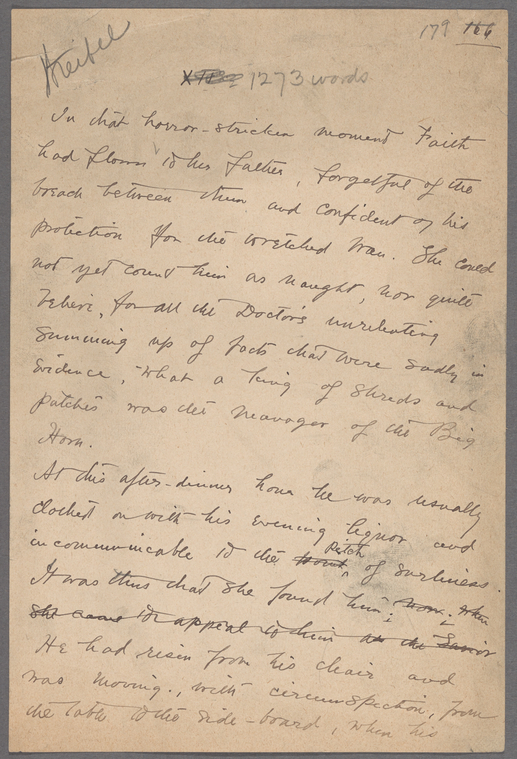 Keibel
179 166
XII 1273 words
In that horror-stricken moment Faith
had flown to his father, forgetful of the
breach between them and confident of his
protection for the wretched man. She could
not yet count him as naught, nor quite
believe, for all the Doctor's unrelenting
summing up of facts that were sadly in
evidence, what a king of shreds and
patches was the manager of the Big
Horn.
At this after-dinner hour he was usually
clocked on with his evening liquor and
incommunicable to the point Pitch of surliness.
It was thus that she found him; now, when
she came to appeal to him as the Savior
He had risen from his chair and
was moving, with circumspection, from
the table to the side-board, when his